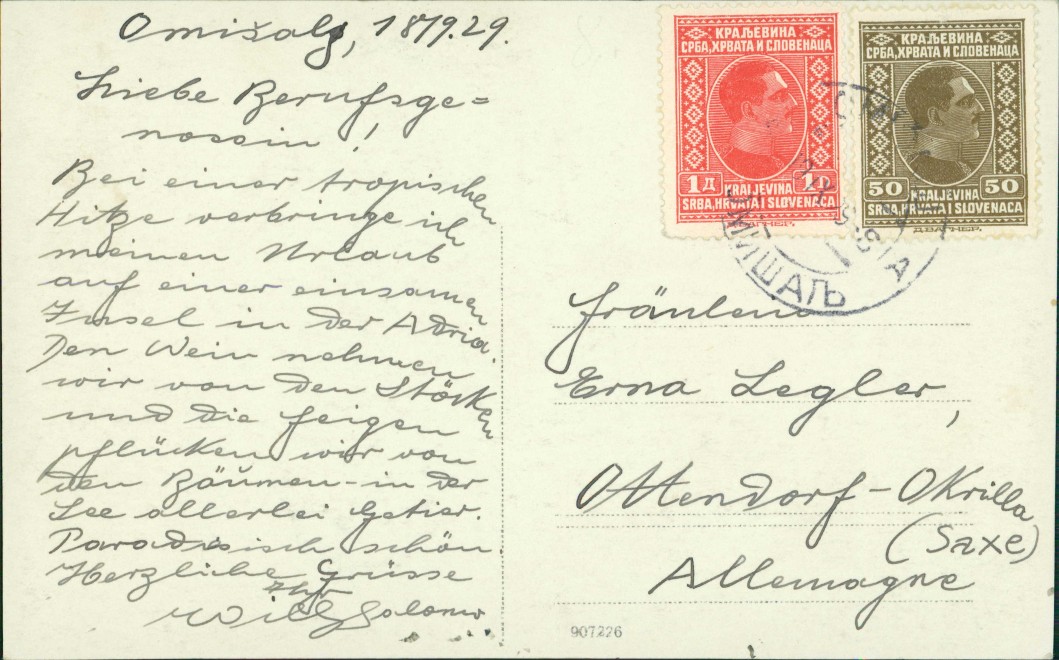 Omišalj, 18/9.29.
Liebe Berufsge=
nossin!
Bei einer tropischen
Hitze verbringe ich
meinen Urlaub
auf einer einsamen
Insel in der Adria.
Den Wein nehmen
wir von den Stöcken
und die Feigen
pflücken wir von
den Bäumen - in der
See allerlei Getier.
Paradisisch schön.
Herzliche Grüsse
Ihr
Willy Salomo
КРАЉЕВИНА
СРБА, ХРВАТА И СЛОВЕНАЦА
1Д 1D
KRALJEVINA
SRBA, HRVATA I SLOVENACA
КРАЉЕВИНА
СРБА, ХРВАТА И СЛОВЕНАЦА
50 50
KRALJEVINA
SRBA, HRVATA I SLOVENACA
ДВАГНЕР.
ОМИШАЉ
Fräulein
Erna Legler,
Ottendorf-Okrilla
(Saxe)
Allemagne
907226